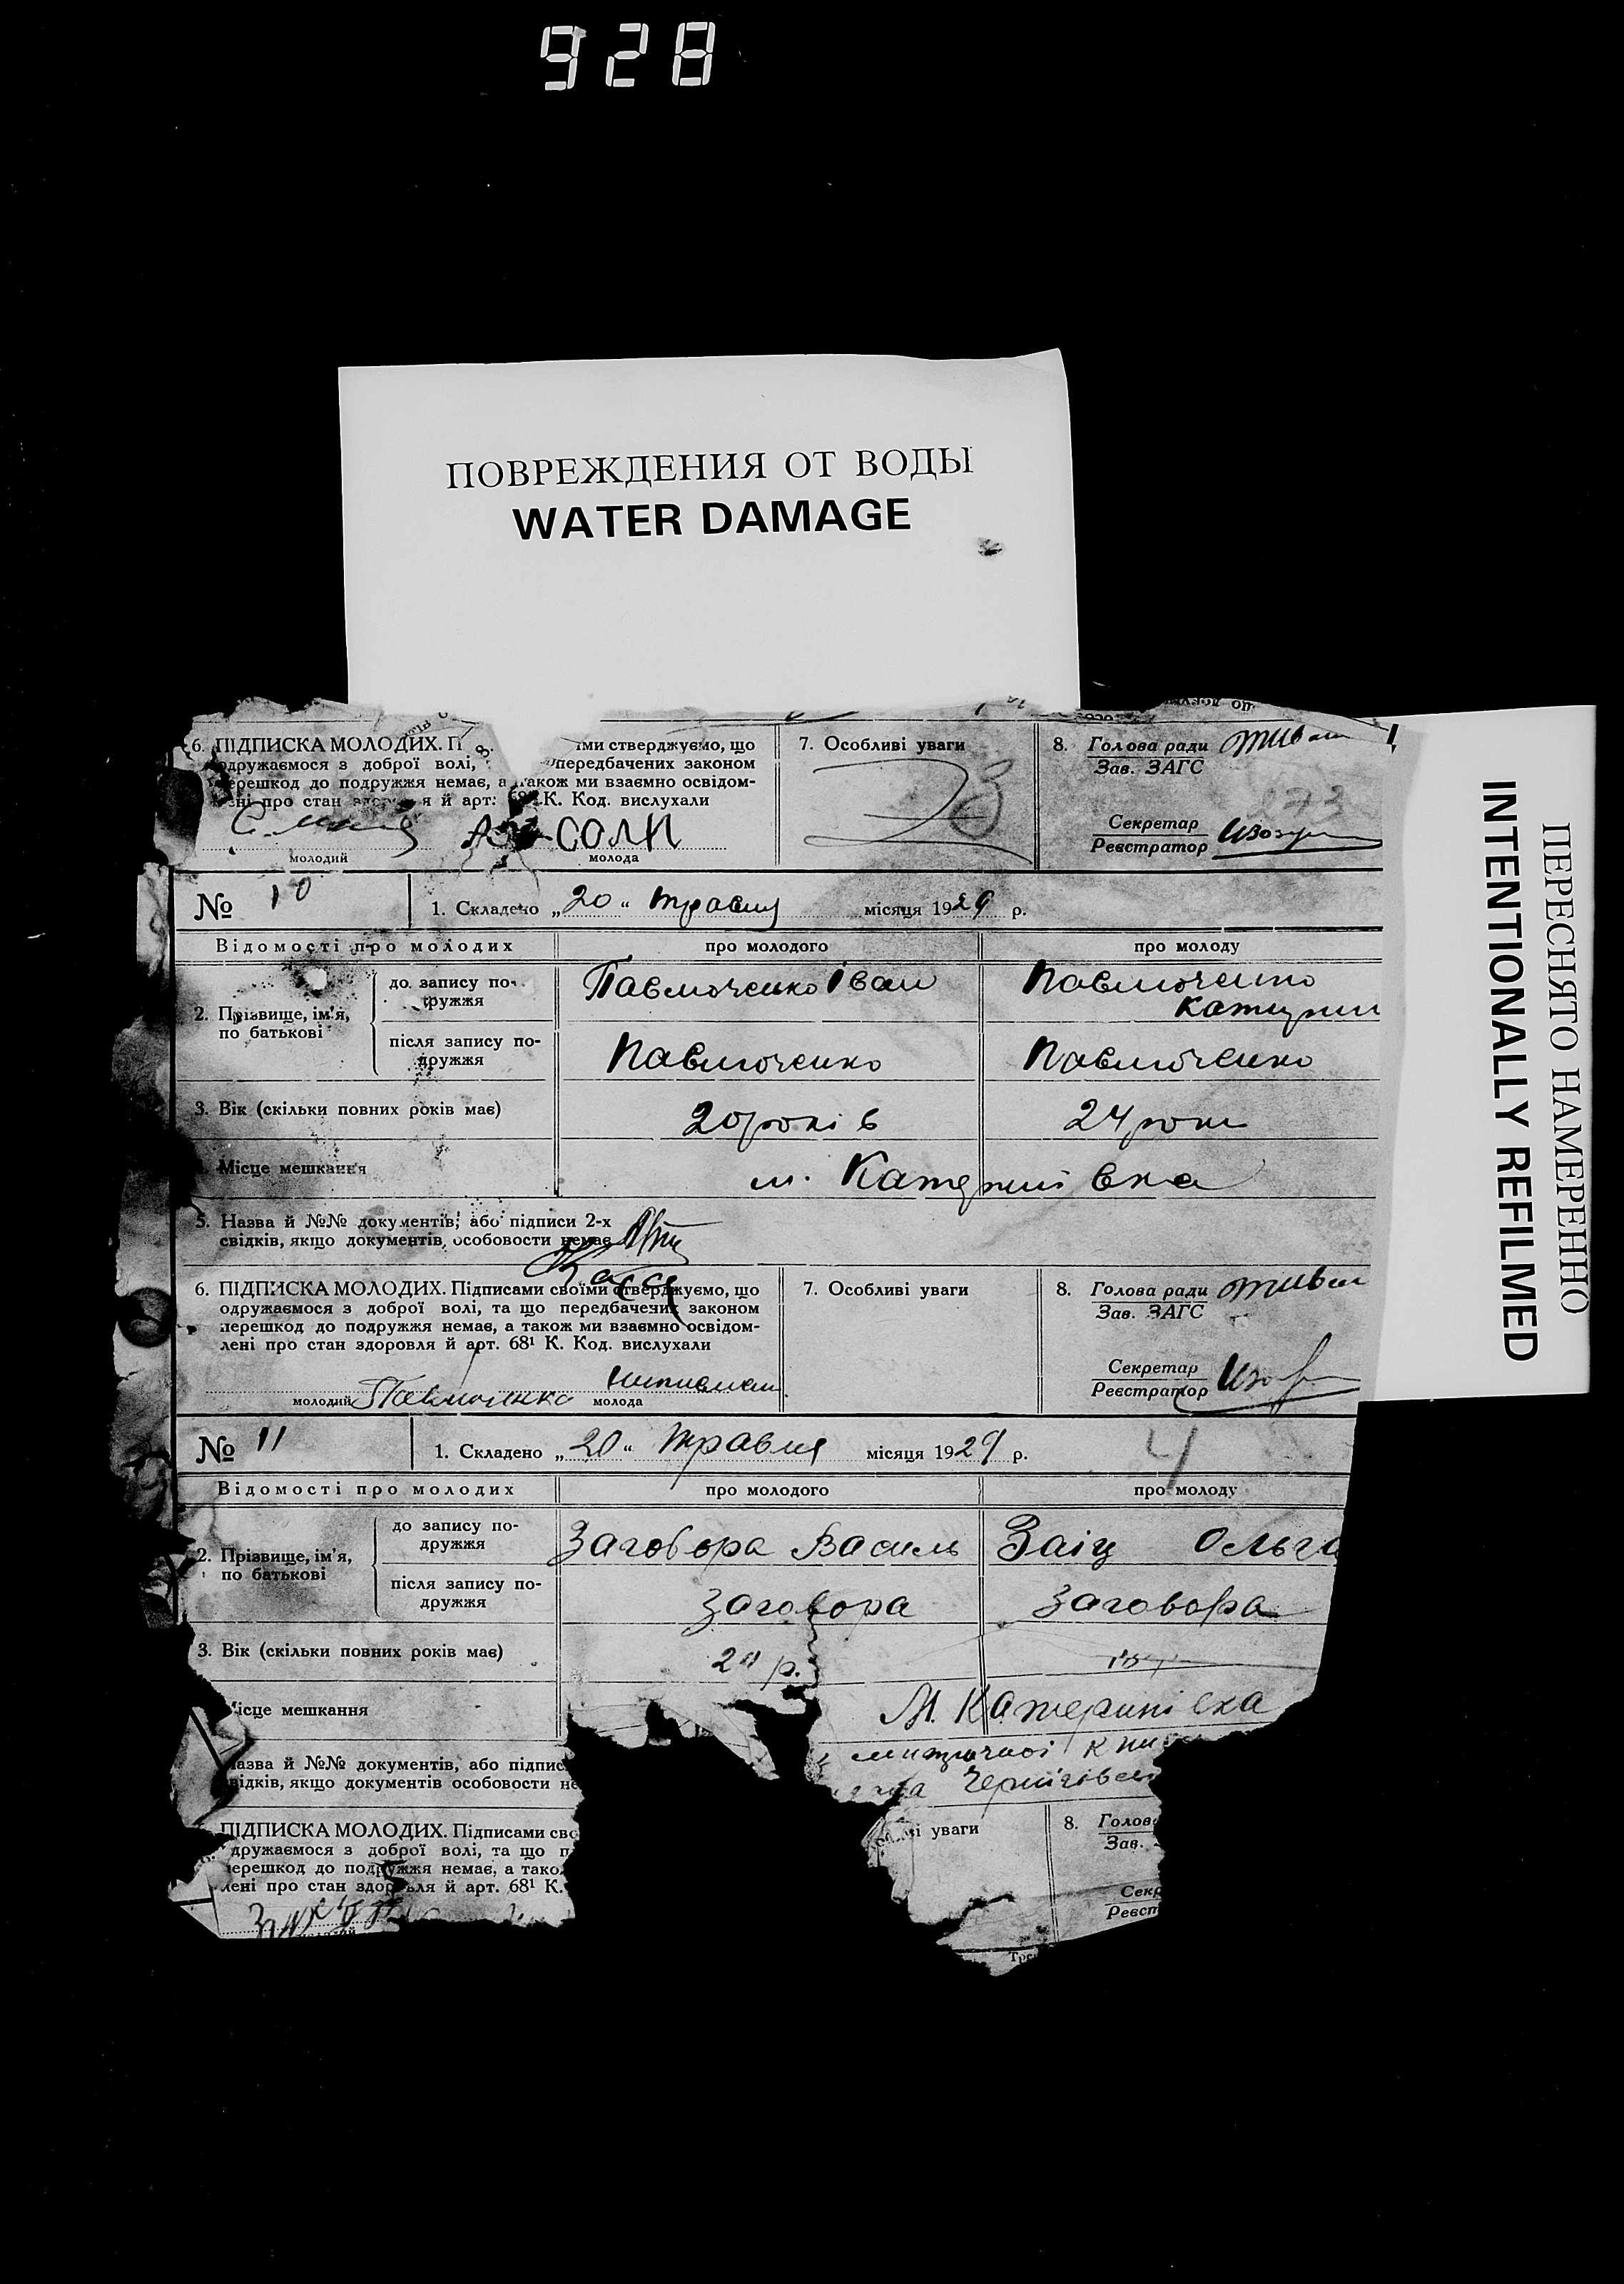 928
ПОВРЕЖДЕНИЯ ОТ ВОДЫ
WATER DAMAGE
ПЕРЕСНЯТО НАМЕРЕННО
INTENTIONALLY REFILMED
6. ПІДПИСКА МОЛОДИХ. П ми стверджуємо, що
одружаємося з доброї волі, передбачених законом
перешкод до подружжя немає, а також ми взаємно освідом-
ені про стан я й арт. 68¹ К. Код. вислухали
молодий молода
7. Особливі уваги
8. Голова ради
Зав. ЗАГС
Секретар
Реєстратор
№ 10
1. Складено „20“ травня місяця 1929 р.
Відомості про молодих
про молодого
про молоду
2. Прізвище, ім'я,
по батькові
до запису по-
дружжя
Павлюченко Іван
Павлюченко
Катерин
після запису по-
дружжя
Павлюченко
Павлюченко
3. Вік (скільки повних років має)
20 років
24 роки
Місце мешкання
м. Катеринівка
5. Назва й №№ документів, або підписи 2-х
свідків, якщо документів особовости немає
6. ПІДПИСКА МОЛОДИХ. Підписами своїми стверджуємо, що
одружаємося з доброї волі, та що передбачених законом
перешкод до подружжя немає, а також ми взаємно освідом-
лені про стан здоровля й арт. 68¹ К. Код. вислухали
молодий молода
7. Особливі уваги
8. Голова ради
Зав. ЗАГС
Секретар
Реєстратор
№ 11
1. Складено „20“ травня місяця 1929 р.
4
Відомості про молодих
про молодого
про молоду
2. Прізвище, ім'я,
по батькові
до запису по-
дружжя
Заговора Василь
Заіц Ольга
після запису по-
дружжя
Заговора
Заговора
3. Вік (скільки повних років має)
р.
Місце мешкання
М. Катеринівка
азва й №№ документів, або підпис
відків, якщо документів особовости не
Чернігівс
ПІДПИСКА МОЛОДИХ. Підписами сво
дружаємося з доброї волі, та що п
ерешкод до подружжя немає, а тако
лені про стан здоровля й арт. 68¹ К.
уваги
8. Голов
Зав.
Секр
Реєст